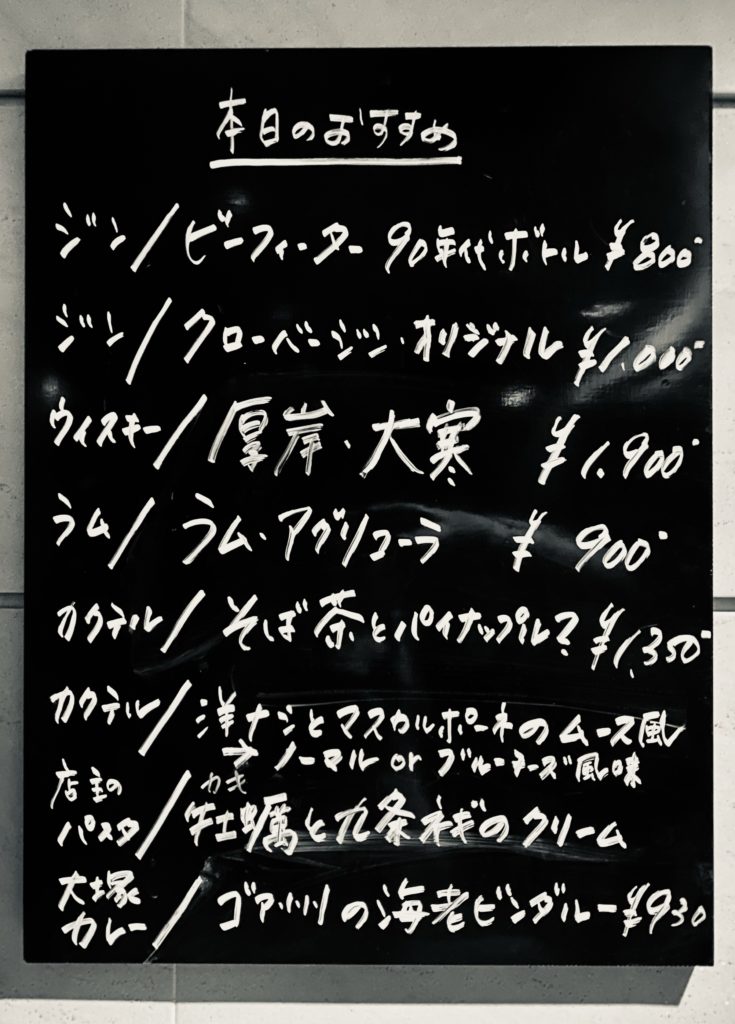 本日のおすすめ
ジン/ビーフィーター 90年代ボトル ¥800-
ジン/クローバージン・オリジナル ¥1,000-
ウィスキー/厚岸・大寒 ¥1,900-
ラム/ラム・アグリコーラ ¥900-
カクテル/そば茶とパイナップル? ¥1,350-
カクテル/洋ナシとマスカルポーネのムース風
→ノーマル or ブルーチーズ風味
店主の
カキ
パスタ/牡蠣と九条ネギのクリーム
大塚
カレー/ゴア州の海老ビンダルー ¥930